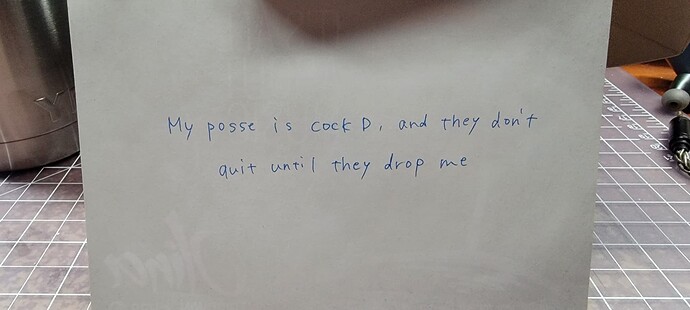 My posse is cock D, and they don't
quit until they drop me